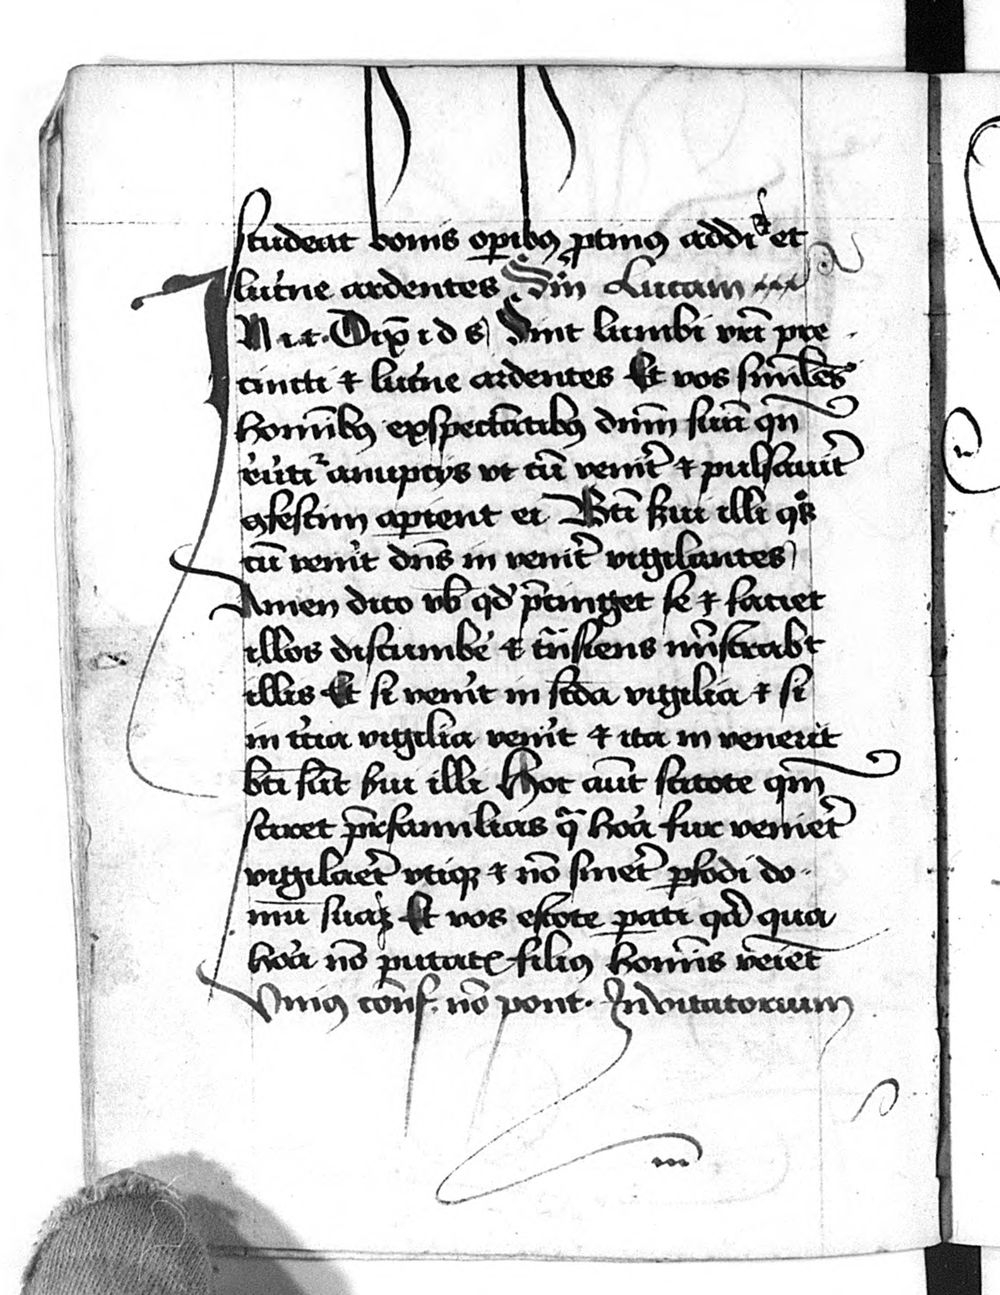 studeat bonis opibꝫ ptinꝰ addit᷑ et
luc̄ne ardentes Scd̄m Lucam
In i t. Dix̄ i d s Sint lumbi vr̄i pre
cincti ⁊ luc̄ne ardentes Et vos sim̄les
homībꝫ exspectātibꝫ dn̄m suū qn̄
reūtat᷑ a nuptijs vt cū venīt ⁊ pulsauīt
ꝯfestim apient ei Bt̄i s̄ui illi qs
cū ven̄it dn̄s in venīt vigilantes
Amen dico vob̄ qd p̄cinget se ⁊ faciet
illos discumbē ⁊ tn̄siens mīstrabt
illis Et si ven̄it in sc̄da vigilia ⁊ si
in t̄cia vigilia ven̄it ⁊ ita in venerit
bt̄i sūt s̄ui illi Hoc aūt scitote qm̄
sciret pr̄familias q̄ hōa fur veniēt
vigilaēt vtiqꝫ ⁊ nō sinēt pfodi do
mū suaꝫ Et vos estote pati qd qua
hōa nō putatꝭ filiꝰ homīs veīet
Vniꝰ conf. nō pont. Invitatorium
m